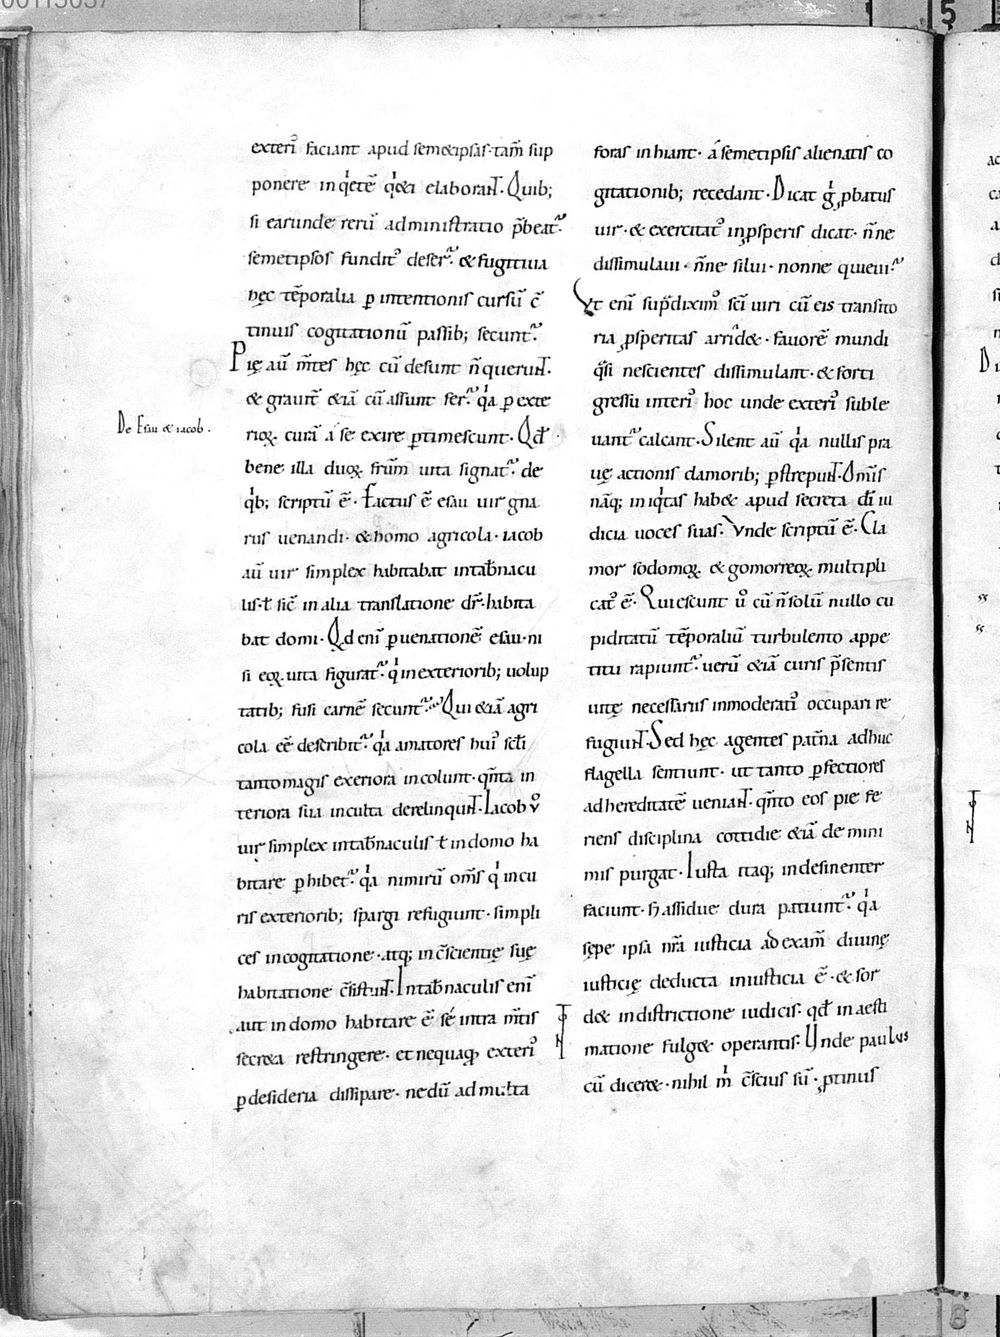 00113037
5
exteri᾽ faciant apud semetipsas· tam̄ sup
ponere in q̇etē q̇ et ei elaborant. Quib;
si earundē rerū administratio p̄beat᷑·
semetipsos fundit᾽ deser᷑· & fugitiua
hęc tēporalia ꝑ intentionis cursū c̄
tinuis cogitationū passib; secunt᷑·
Pię aū m̄tes hęc cū desunt n̄ querunt.
& grauit̄ &iā cū assunt fer᷑· q̇a ꝑ exte
rioꝝ curā a se exire ꝑtimescunt· Qd̄
bene illa duoꝝ fr̄um uita signat᷑· de
q̇b; scriptū ē· Factus ē esau uir gna
rus uenandi· & homo agricola· iacob
aū uir simplex habitabat in tab̄nacu
lis· ł sic̄ in alia translatione dr̄· habita
bat domi· Qd enī ꝑ uenationē esau· ni
si eoꝝ uita figurat᷑· q̇ in exteriorib; uolup
tatib; fusi carnē secunt᷑· Qui &iā agri
cola eē describit᷑· q̇a amatores hui᾽ sc̄li
tanto magis exeriora incolunt· qn̄ta in
teriora sua inculta derelinqunt. Iacob v᾽
uir simplex in tab̄naculis ł in domo ha
bitare ꝑhibet᷑· q̇a nimirū om̄s q̇ in cu
ris exteriorib; spargi refugiunt· simpli
ces in cogitatione· atq; in c̄scientię suę
habitatione c̄sistunt. In tab̄naculis enī
aut in domo habitare ē· se intra m̄tis
secreta restringere· et nequaꝙ exteri᾽
ꝑ desideria dissipare· ne dū ad multa
De Esau & iacob.
foras inhiant· a semetipsis alienatis co
gitationib; recedant· Dicat g̊ ꝓbatus
uir· & exercitat᾽ in ꝓsperis dicat· n̄ne
dissimulaui· n̄ne silui· nonne quieui·
Vt enī sup̄diximᷣ sc̄i uiri cū eis transito
ria ꝓsperitas arrid&· fauorē mundi
q̄si nescientes dissimulant· & forti
gressu interi᾽ hoc unde exteri᾽ suble
uant᷑ calcant· Silent aū q̇a nullis pra
uę actionis clamorib; ꝑstrepunt. Om̄s
nāq; iniq̇tas hab& apud secreta dī iu
dicia uoces suas· Vnde scriptū ē· Cla
mor sodomoꝝ & gomorreoꝝ multipli
cat᾽ ē· Quiescunt u᾽ cū n̄ solū nullo cu
piditatū tēporaliū turbulento appe
titu rapiunt᷑· uerū &iā curis p̄sentis
uitę necessariis inmoderati᾽ occupari re
fugiunt. Sed hęc agentes pat̄na adhuc
flagella sentiunt· ut tanto ꝑfectiores
ad hereditatē ueniant. qn̄to eos pie fe
riens disciplina cottidie &iā de mini
mis purgat· Iusta itaq; indesinenter
faciunt· s; assidue dura patiunt᷑· q̇a
sępe ipsa nr̄a iusticia ad exam̄ diuinę
iusticię deducta iniusticia ē· & sor
d& in districtione iudicis· qd̄ in aesti
matione fulg& operantis· Vnde paulus
cū diceret· nihil m̊ c̄scius sū· ꝓtinus
8